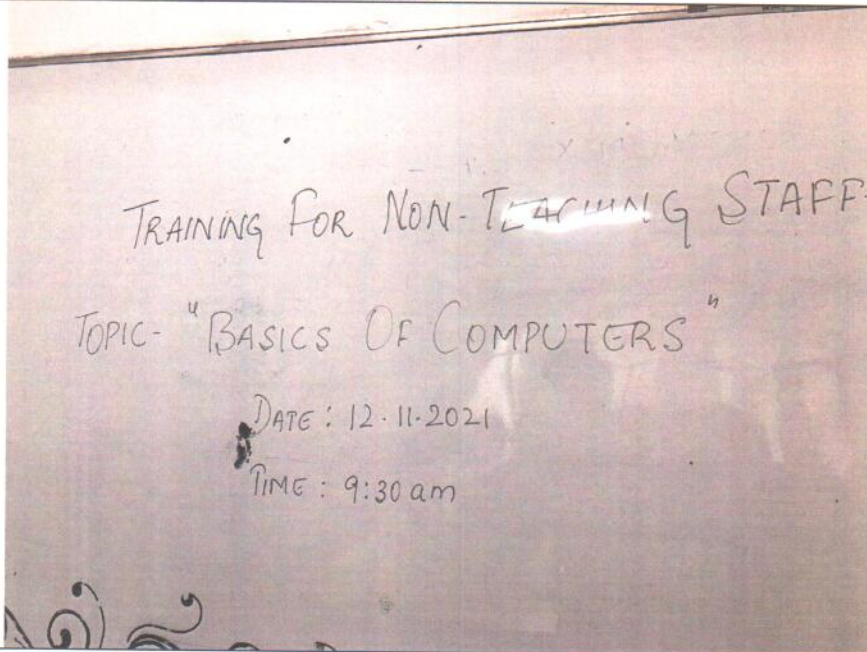 TRAINING FOR NON-TEACHING STAFF
TOPIC- "BASICS OF COMPUTERS"
DATE : 12.11.2021
TIME : 9:30 am